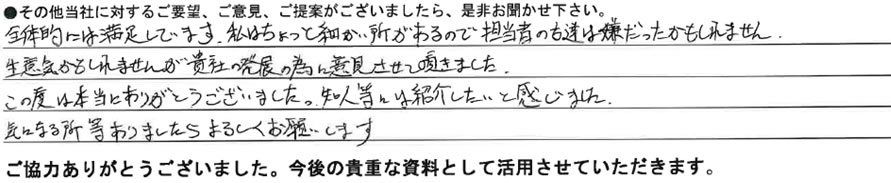 ●その他当社に対するご要望、ご意見、ご提案がございましたら、是非お聞かせ下さい。
全体的には満足しています。私はちょっと細かい所があるので担当者の方達は嫌だったかもしれません。
生意気かもしれませんが貴社の発展の為に意見させて頂きました。
この度は本当にありがとうございました。知人等には紹介したいと感じました。
気になる所等ありましたらよろしくお願いします
ご協力ありがとうございました。今後の貴重な資料として活用させていただきます。